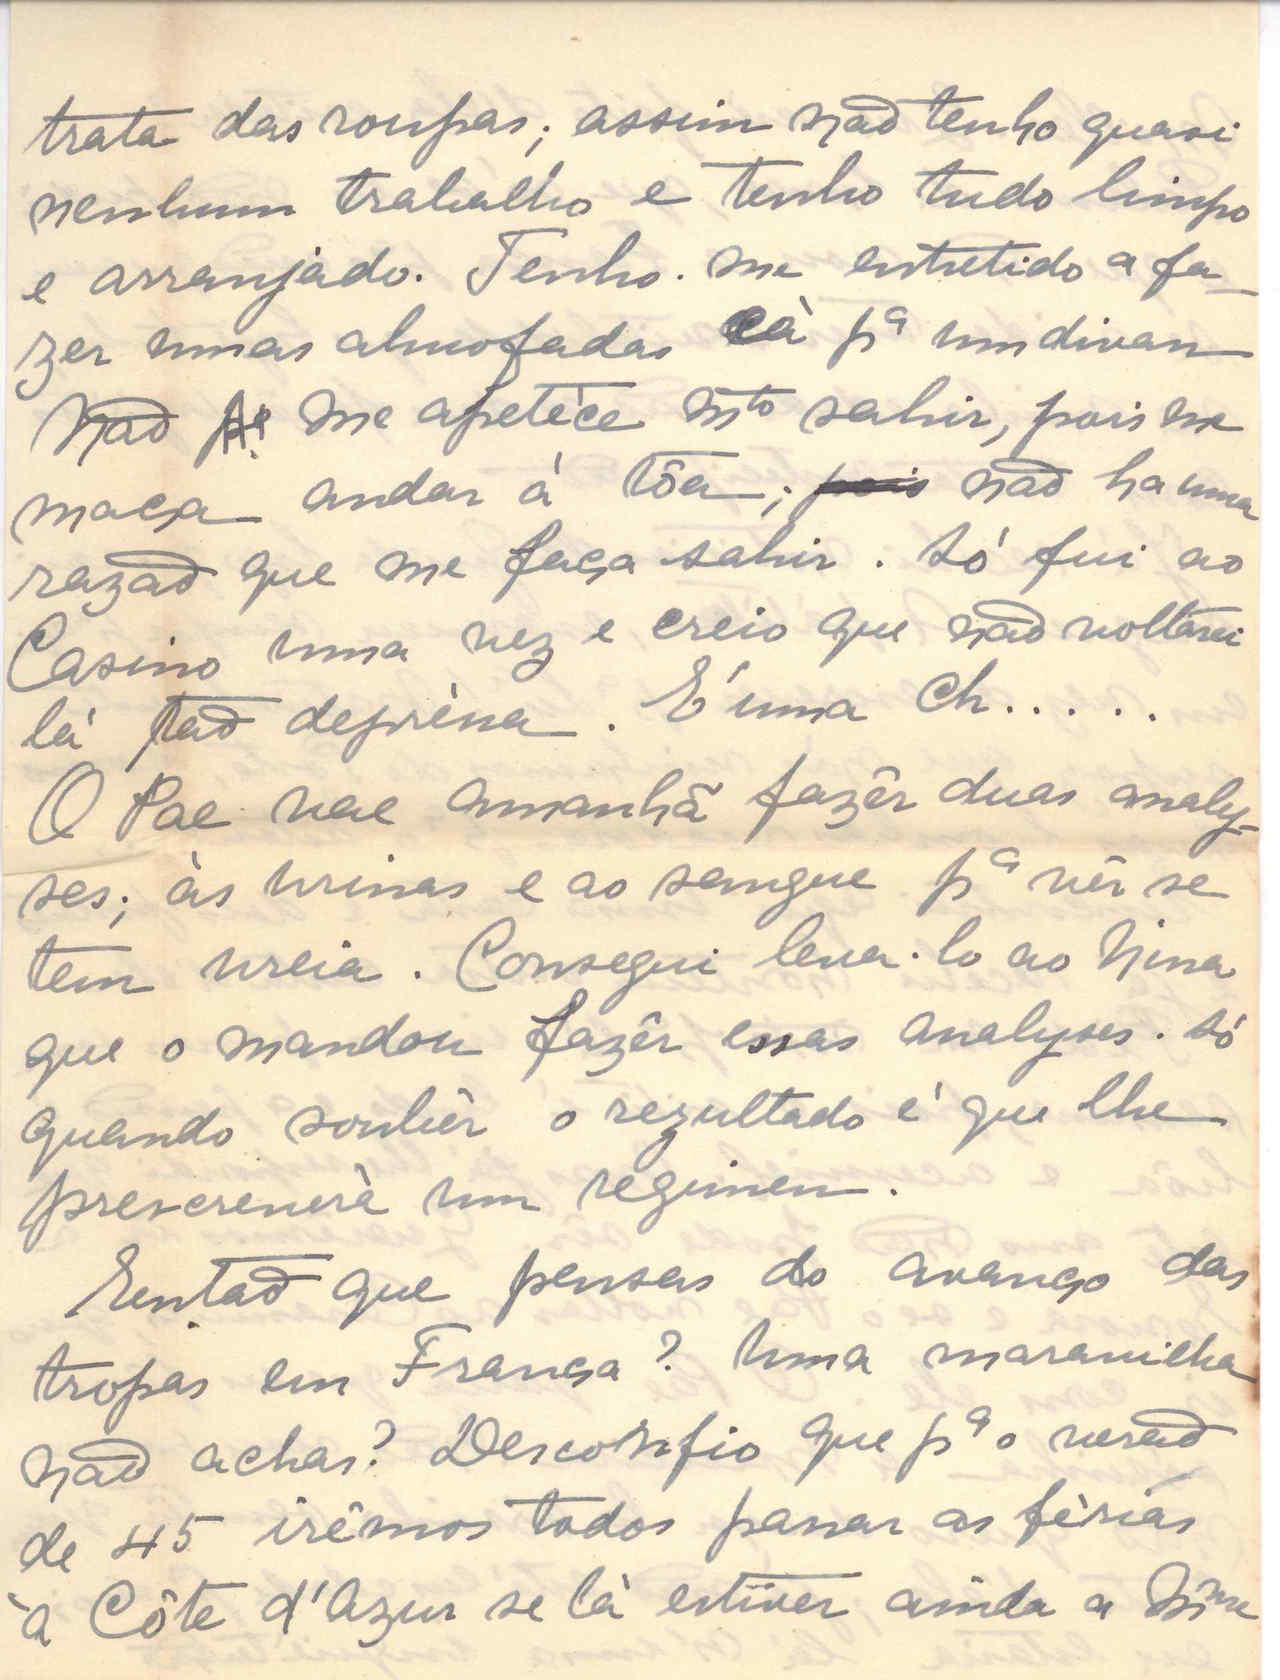 trata das roupas; assim não tenho quasi
nenhum trabalho e tenho tudo limpo
e arranjado. Tenho-me entretido a fa-
zer umas almofadas cà pª um divan
Não me apetèce mto sahir, pois me
maça andar à tôa; pois não ha uma
razão que me faça sahir. Só fui ao
Casino uma vez e creio que não voltarei
lá tão deprèssa. E' uma Ch.....
O Pae vae amanhã fazêr duas analy-
ses; às urinas e ao sangue pª vêr se
tem ureia. Consegui leva-lo ao
que o mandou fazêr essas analyses. Só
quando soubér o rezultado é que lhe
prescreverà um regimen.
Então que pensas do avanço das
tropas em França? Uma maravilha
não achas? Desconfio que pª o verão
de 45 irêmos todos passar as férias
à Côte d'Azur se lá estiver ainda a